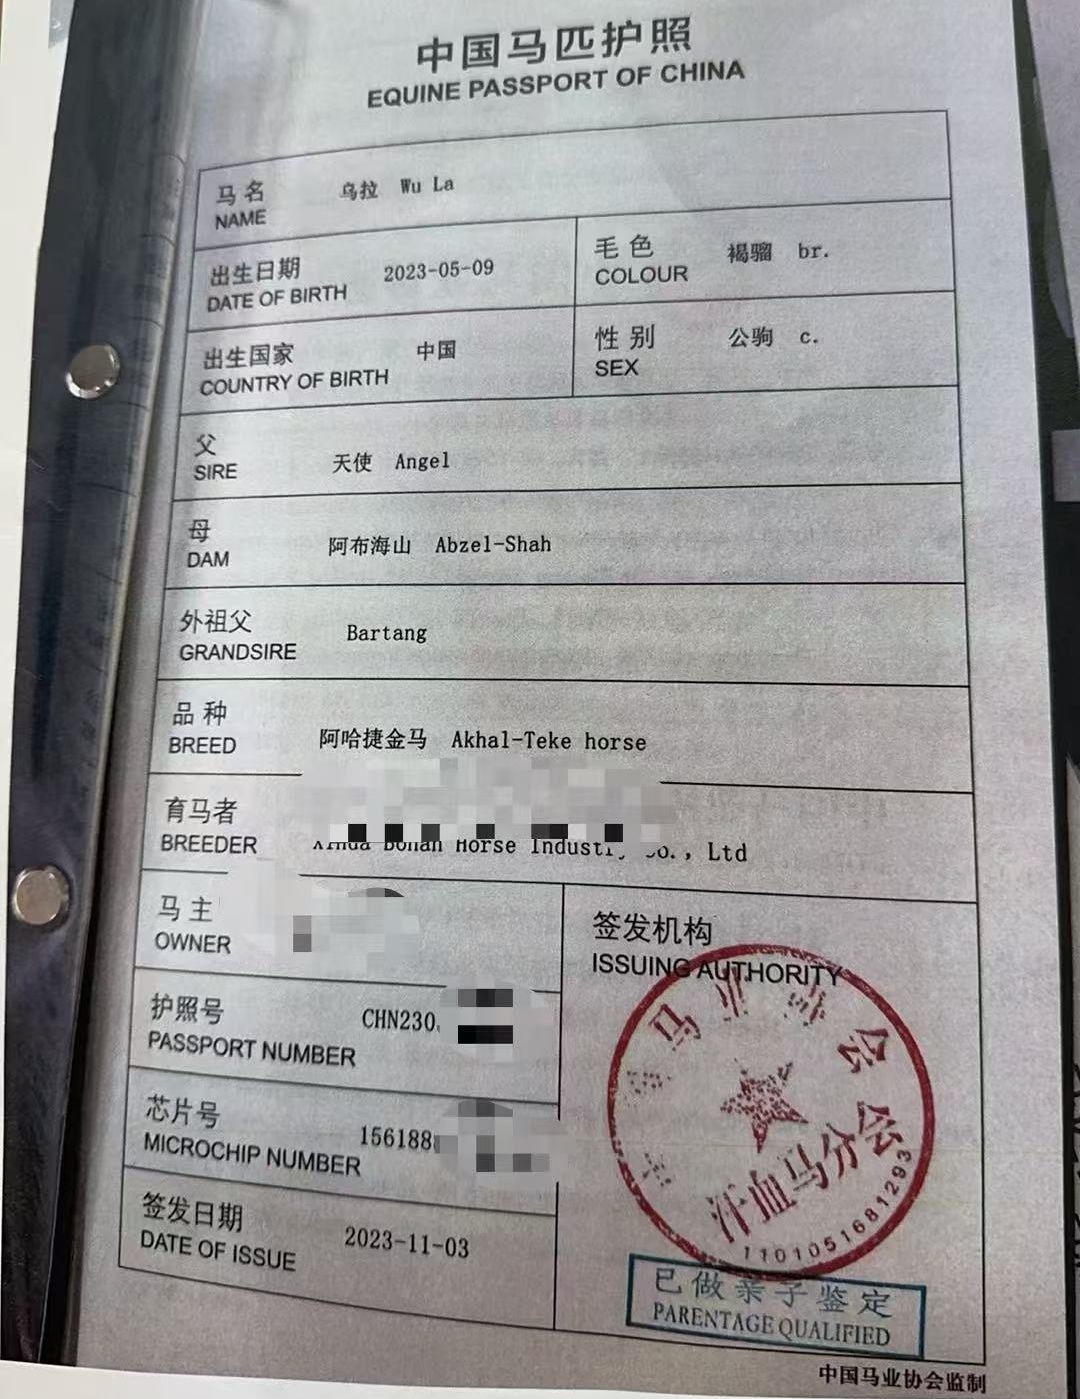 中国马匹护照
EQUINE PASSPORT OF CHINA
马名 乌拉 Wu La
NAME
出生日期 2023-05-09
DATE OF BIRTH
毛色 褐骝 br.
COLOUR
出生国家 中国
COUNTRY OF BIRTH
性别 公驹 c.
SEX
父 天使 Angel
SIRE
母 阿布海山 Abzel-Shah
DAM
外祖父 Bartang
GRANDSIRE
品种 阿哈捷金马 Akhal-Teke horse
BREED
育马者
BREEDER Horse Industry Co., Ltd
马主
OWNER
签发机构
ISSUING AUTHORITY
护照号 CHN230
PASSPORT NUMBER
芯片号 156188
MICROCHIP NUMBER
签发日期 2023-11-03
DATE OF ISSUE
马业协会
汗血马分会
1101051681293
已做亲子鉴定
PARENTAGE QUALIFIED
中国马业协会监制